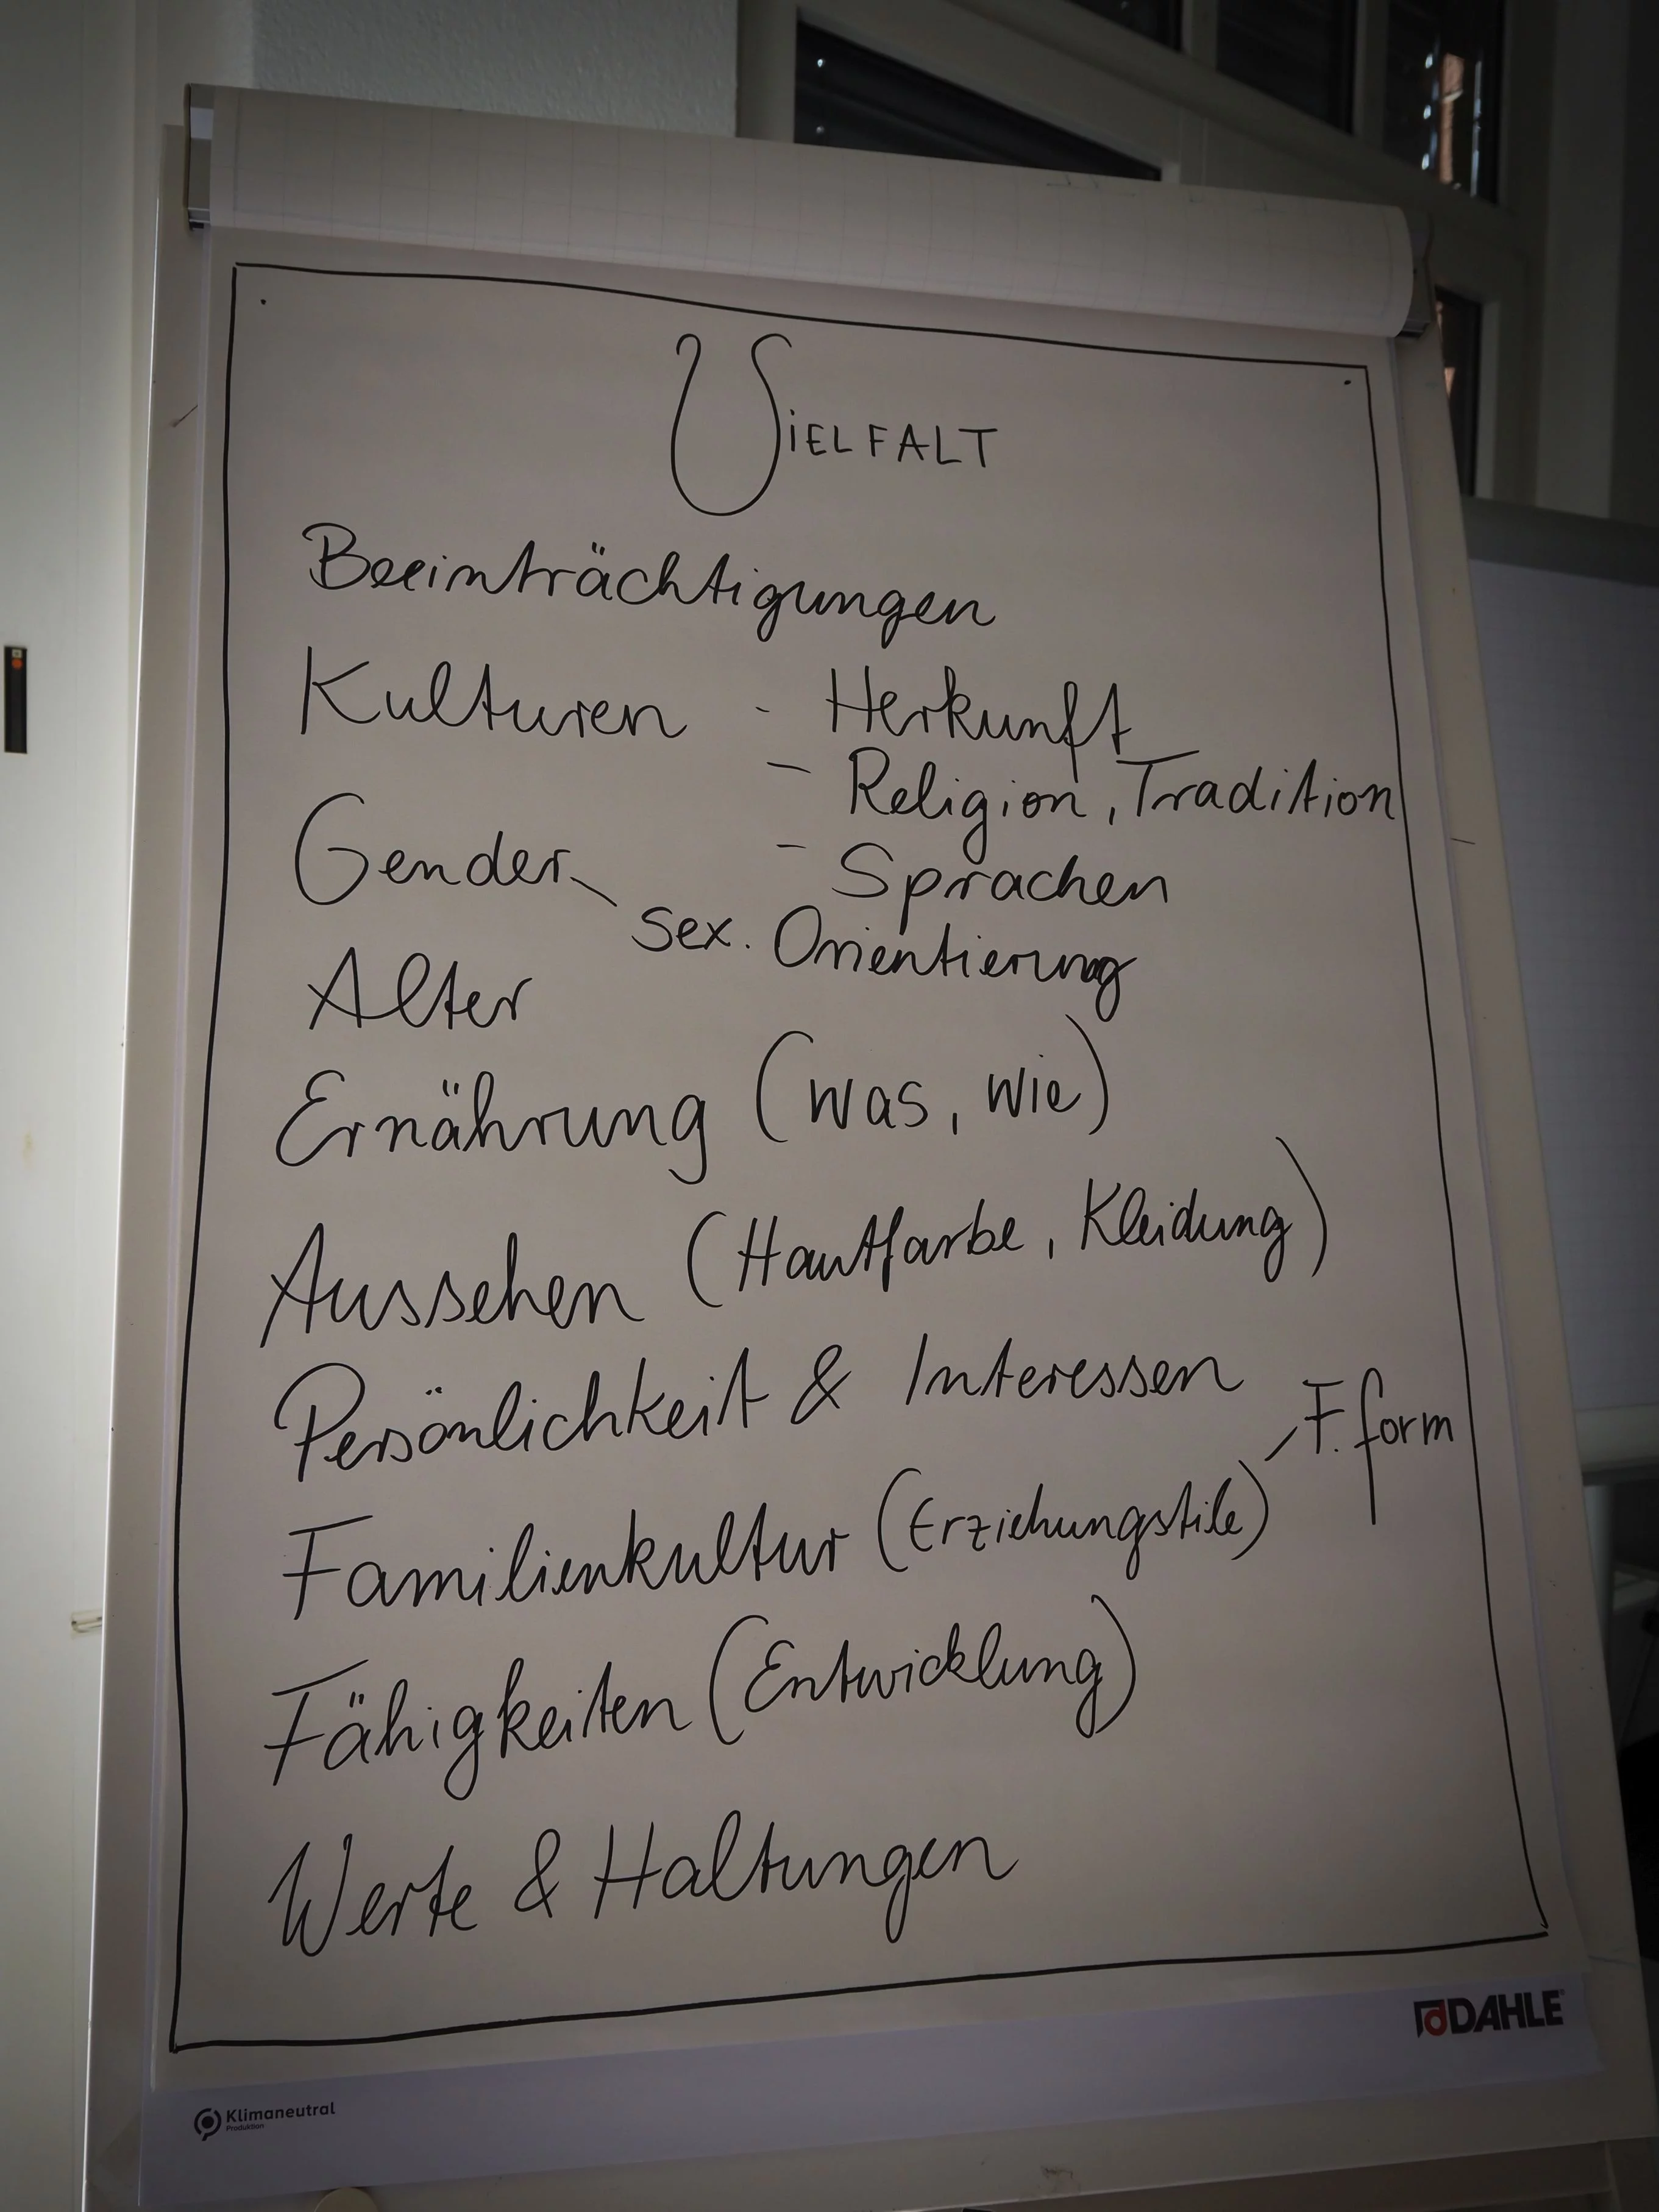 VIELFALT
Beeinträchtigungen
Kulturen - Herkunft
- Religion, Tradition
- Sprachen
Gender
sex. Orientierung
Alter
Ernährung (was, wie)
Aussehen (Hautfarbe, Kleidung)
Persönlichkeit & Interessen
Familienkultur (Erziehungstile) F.form
Fähigkeiten (Entwicklung)
Werte & Haltungen
DAHLE
Klimaneutral
Produktion